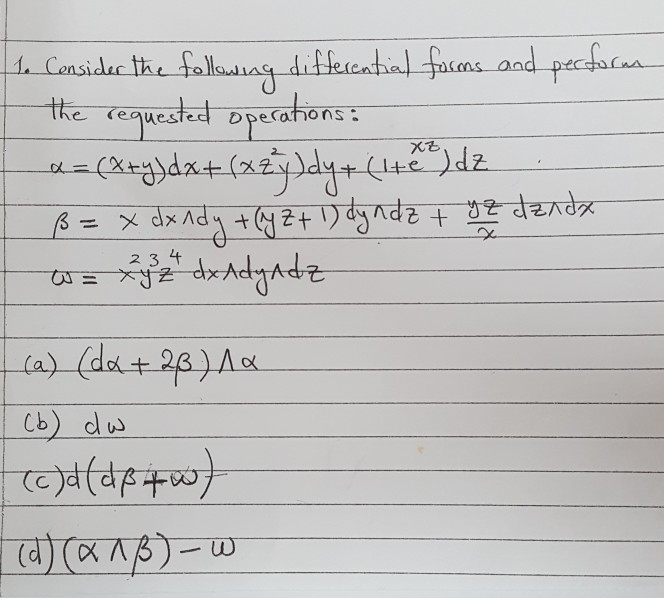 1. Consider the following differential forms and perform
the requested operations:
α = (x+y)dx + (xz²y)dy + (1+e^{xz})dz
β = x dx∧dy + (yz+1) dy∧dz + \frac{yz}{x} dz∧dx
ω = x²y³z⁴ dx∧dy∧dz
(a) (dα + 2β) ∧ α
(b) dω
(c) d(dβ + ω)
(d) (α ∧ β) − ω